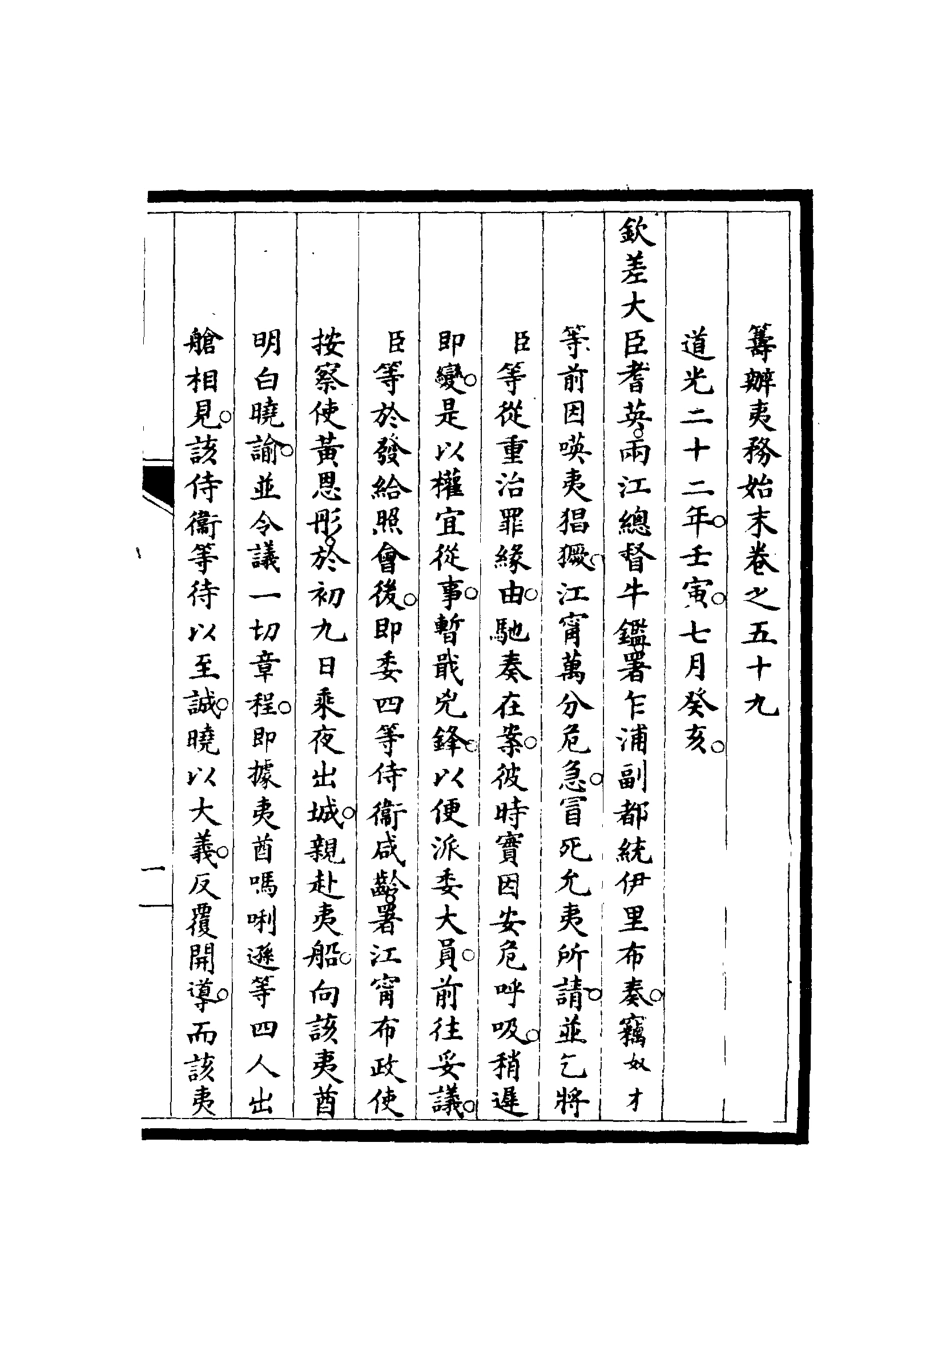 籌辦夷務始末卷之五十九
道光二十二年。壬寅。七月癸亥。
欽差大臣耆英。兩江總督牛鑑。署乍浦副都統伊里布奏。竊奴才
等前因㗸夷猖獗。江甯萬分危急。冒死允夷所請。並乞將
臣等從重治罪緣由。馳奏在案。彼時實因安危呼吸。稍遲
即變。是以權宜從事。暫戢兇鋒。以便派委大員。前往妥議。
臣等於發給照會後。即委四等侍衞咸齡。署江甯布政使
按察使黃恩彤。於初九日乘夜出城。親赴夷船。向該夷酋
明白曉諭。並令議一切章程。即據夷酋嗎唎遜等四人出
艙相見。該侍衞等待以至誠。曉以大義。反覆開導。而該夷
一